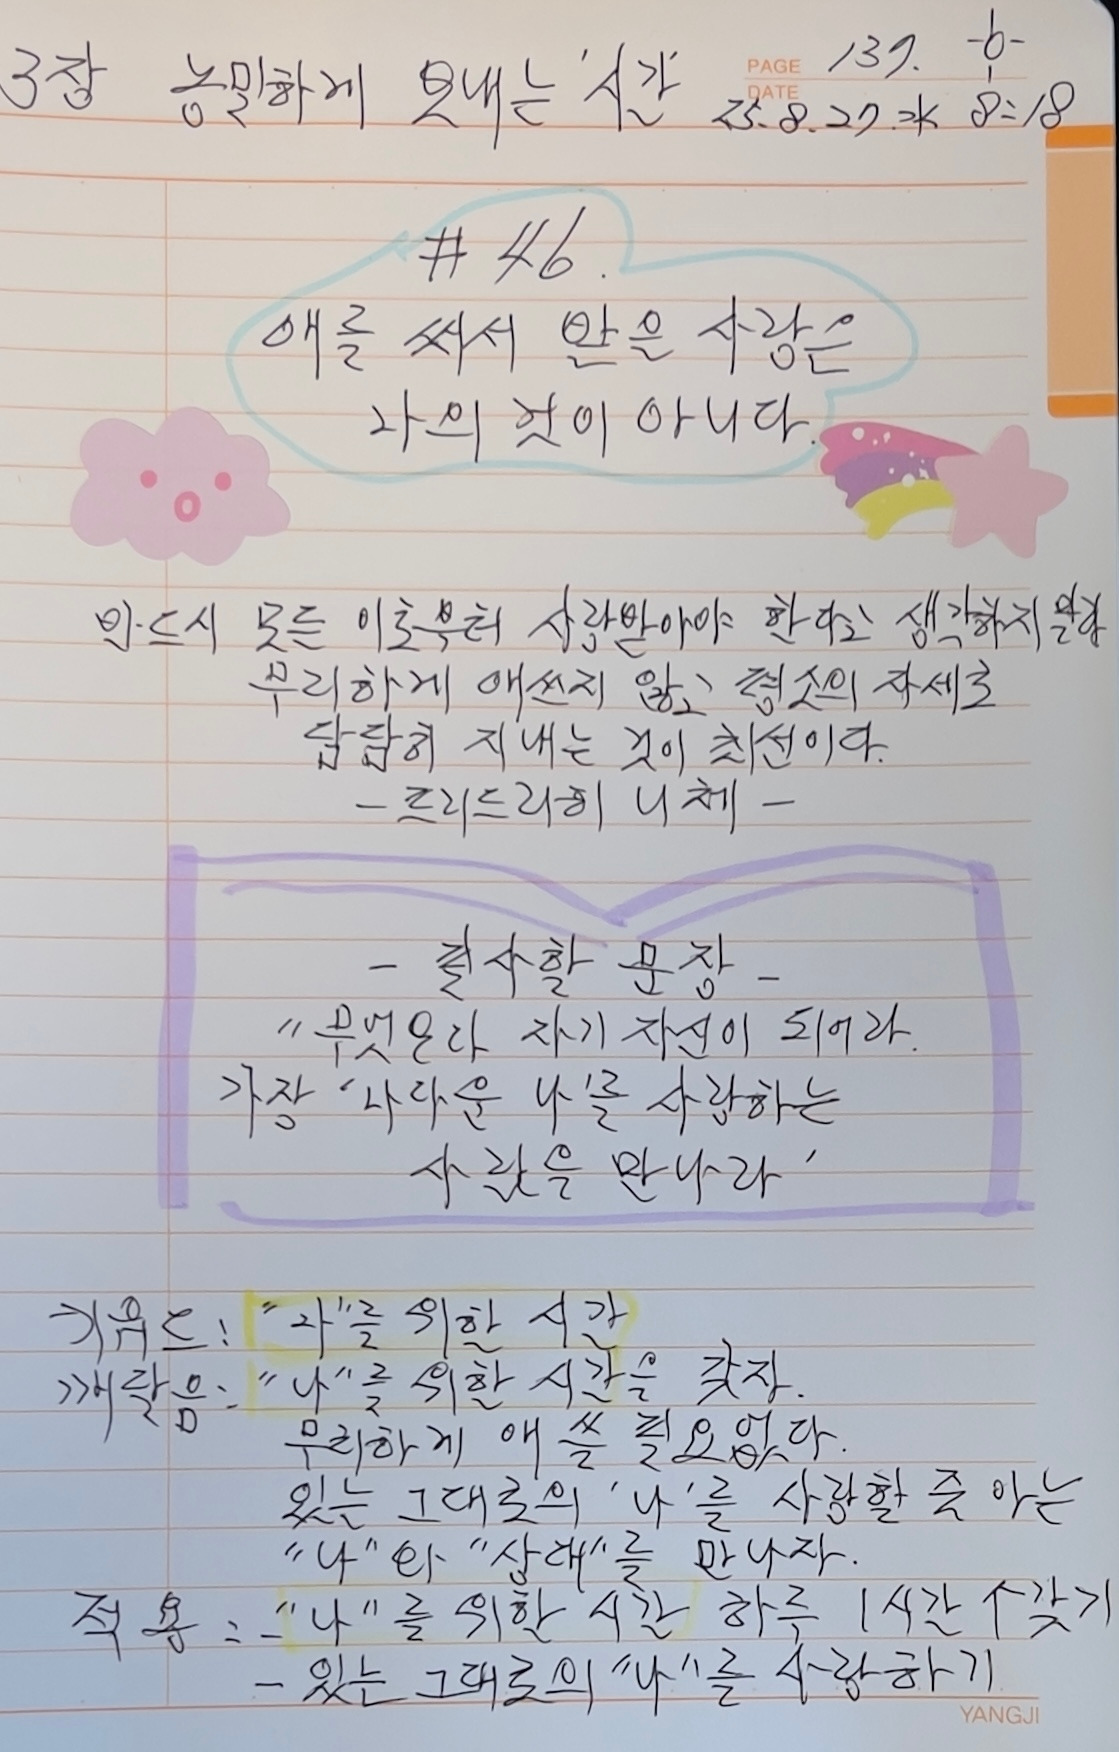 3장 농밀하게 보내는 '시간'
PAGE 137. -6-
DATE 25.8.27.水 8:18
#46.
애를 써서 받은 사랑은
나의 것이 아니다.
반드시 모든 이로부터 사랑받아야 한다고 생각하지 말라
무리하게 애쓰지 않고 평소의 자세로
담담히 지내는 것이 최선이다.
- 프리드리히 니체 -
- 필사할 문장 -
"무엇보다 자기 자신이 되어라.
가장 '나다운 나'를 사랑하는
사람을 만나라'
키워드: "나"를 위한 시간
깨달음: "나"를 위한 시간을 갖자.
무리하게 애 쓸 필요없다.
있는 그대로의 '나'를 사랑할 줄 아는
"나"와 "상대"를 만나자.
적용: - "나"를 위한 시간 하루 1시간↑갖기
- 있는 그대로의 "나"를 사랑하기
YANGJI